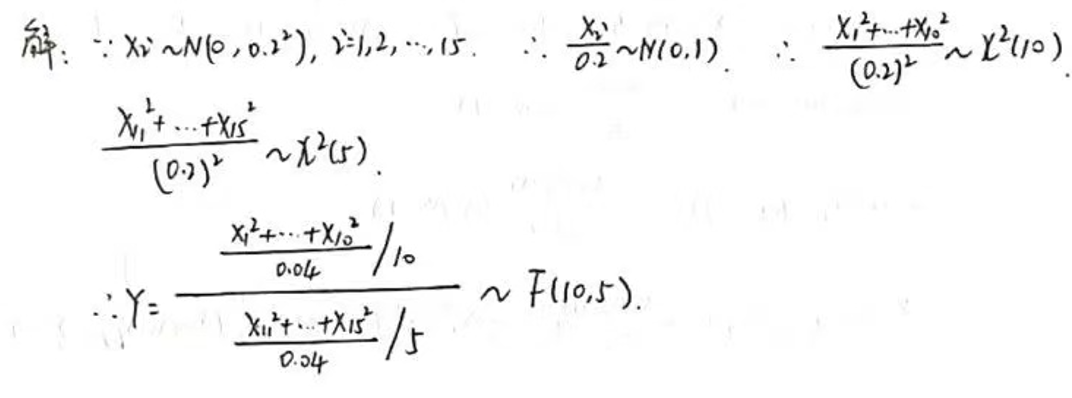 解: ∵ Xi ~ N(0, 0.2²), i=1,2,…,15. ∴ Xi/0.2 ~ N(0,1). ∴ (X₁²+…+X₁₀²)/(0.2)² ~ χ²(10).
(X₁₁²+…+X₁₅²)/(0.2)² ~ χ²(5).
∴ Y = ((X₁²+…+X₁₀²)/0.04 / 10) / ((X₁₁²+…+X₁₅²)/0.04 / 5) ~ F(10,5).